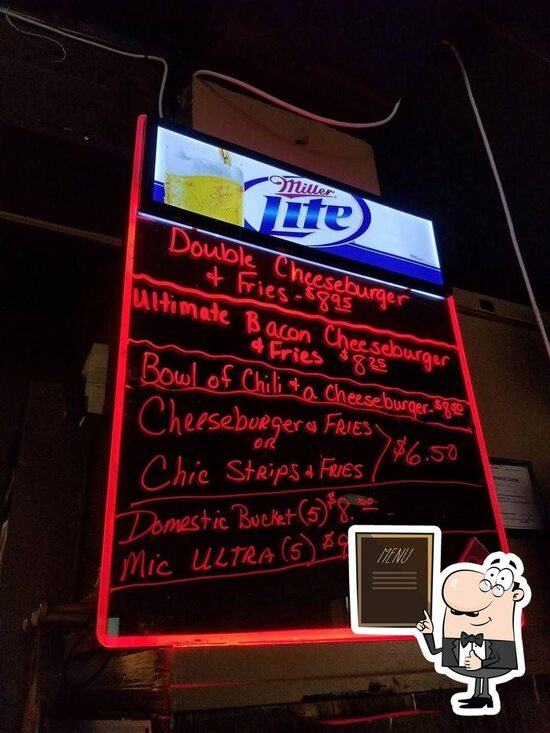 Miller
Lite
Double Cheeseburger
+ Fries - $8.95
Ultimate Bacon Cheeseburger
+ Fries $8.25
Bowl of Chili + a Cheeseburger - $8.50
Cheeseburger + FRIES
OR
$6.50
Chic STRIPS + FRIES
Domestic Bucket (5) $8.00
Mic ULTRA (5) $9
MENU